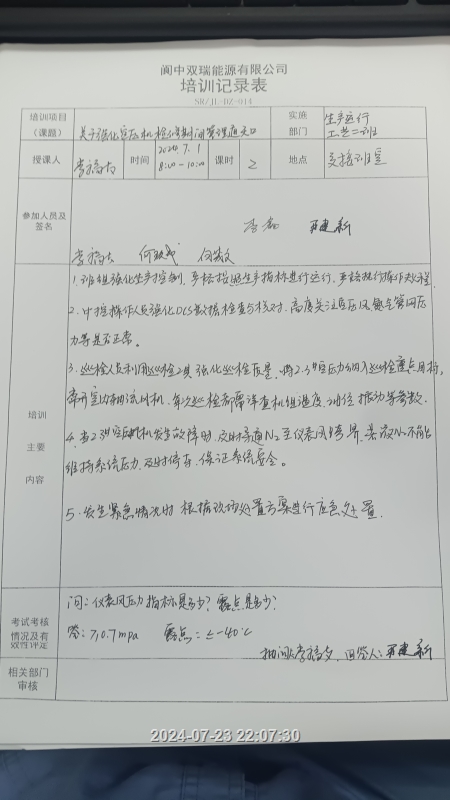 阆中双瑞能源有限公司
培训记录表
SR/JL-DZ-014
培训项目（课题） 关于强化空压机检修期间管理通知 实施部门 生产运行工艺二班
授课人 时间 2024.7.1 8:00-10:00 课时 2 地点 交接班室
参加人员及签名
李磊 王建新
培训主要内容
1. 班组强化生产控制，严格按照生产指标进行运行，严格执行操作规程。
2. 中控操作人员强化DCS数据检查与核对，高度关注空压风氮气管网压
力等是否正常。
3. 巡检人员利用巡检工具强化巡检质量，将2.3#空压机纳入巡检重点目标，
每次巡检都需详查机组温度、油位振动等参数。
4. 当2.3#空压机发生故障时，及时导通N₂至仪表风 若液N₂不能
维持系统压力，及时停车，保证系统安全。
5. 发生紧急情况时 根据现场处置方案进行应急处置。
考试考核情况及有效性评定
问：仪表风压力指标是多少？露点是多少？
答：≥0.7mpa 露点：≤-40℃
回答人：王建新
相关部门审核
2024-07-23 22:07:30